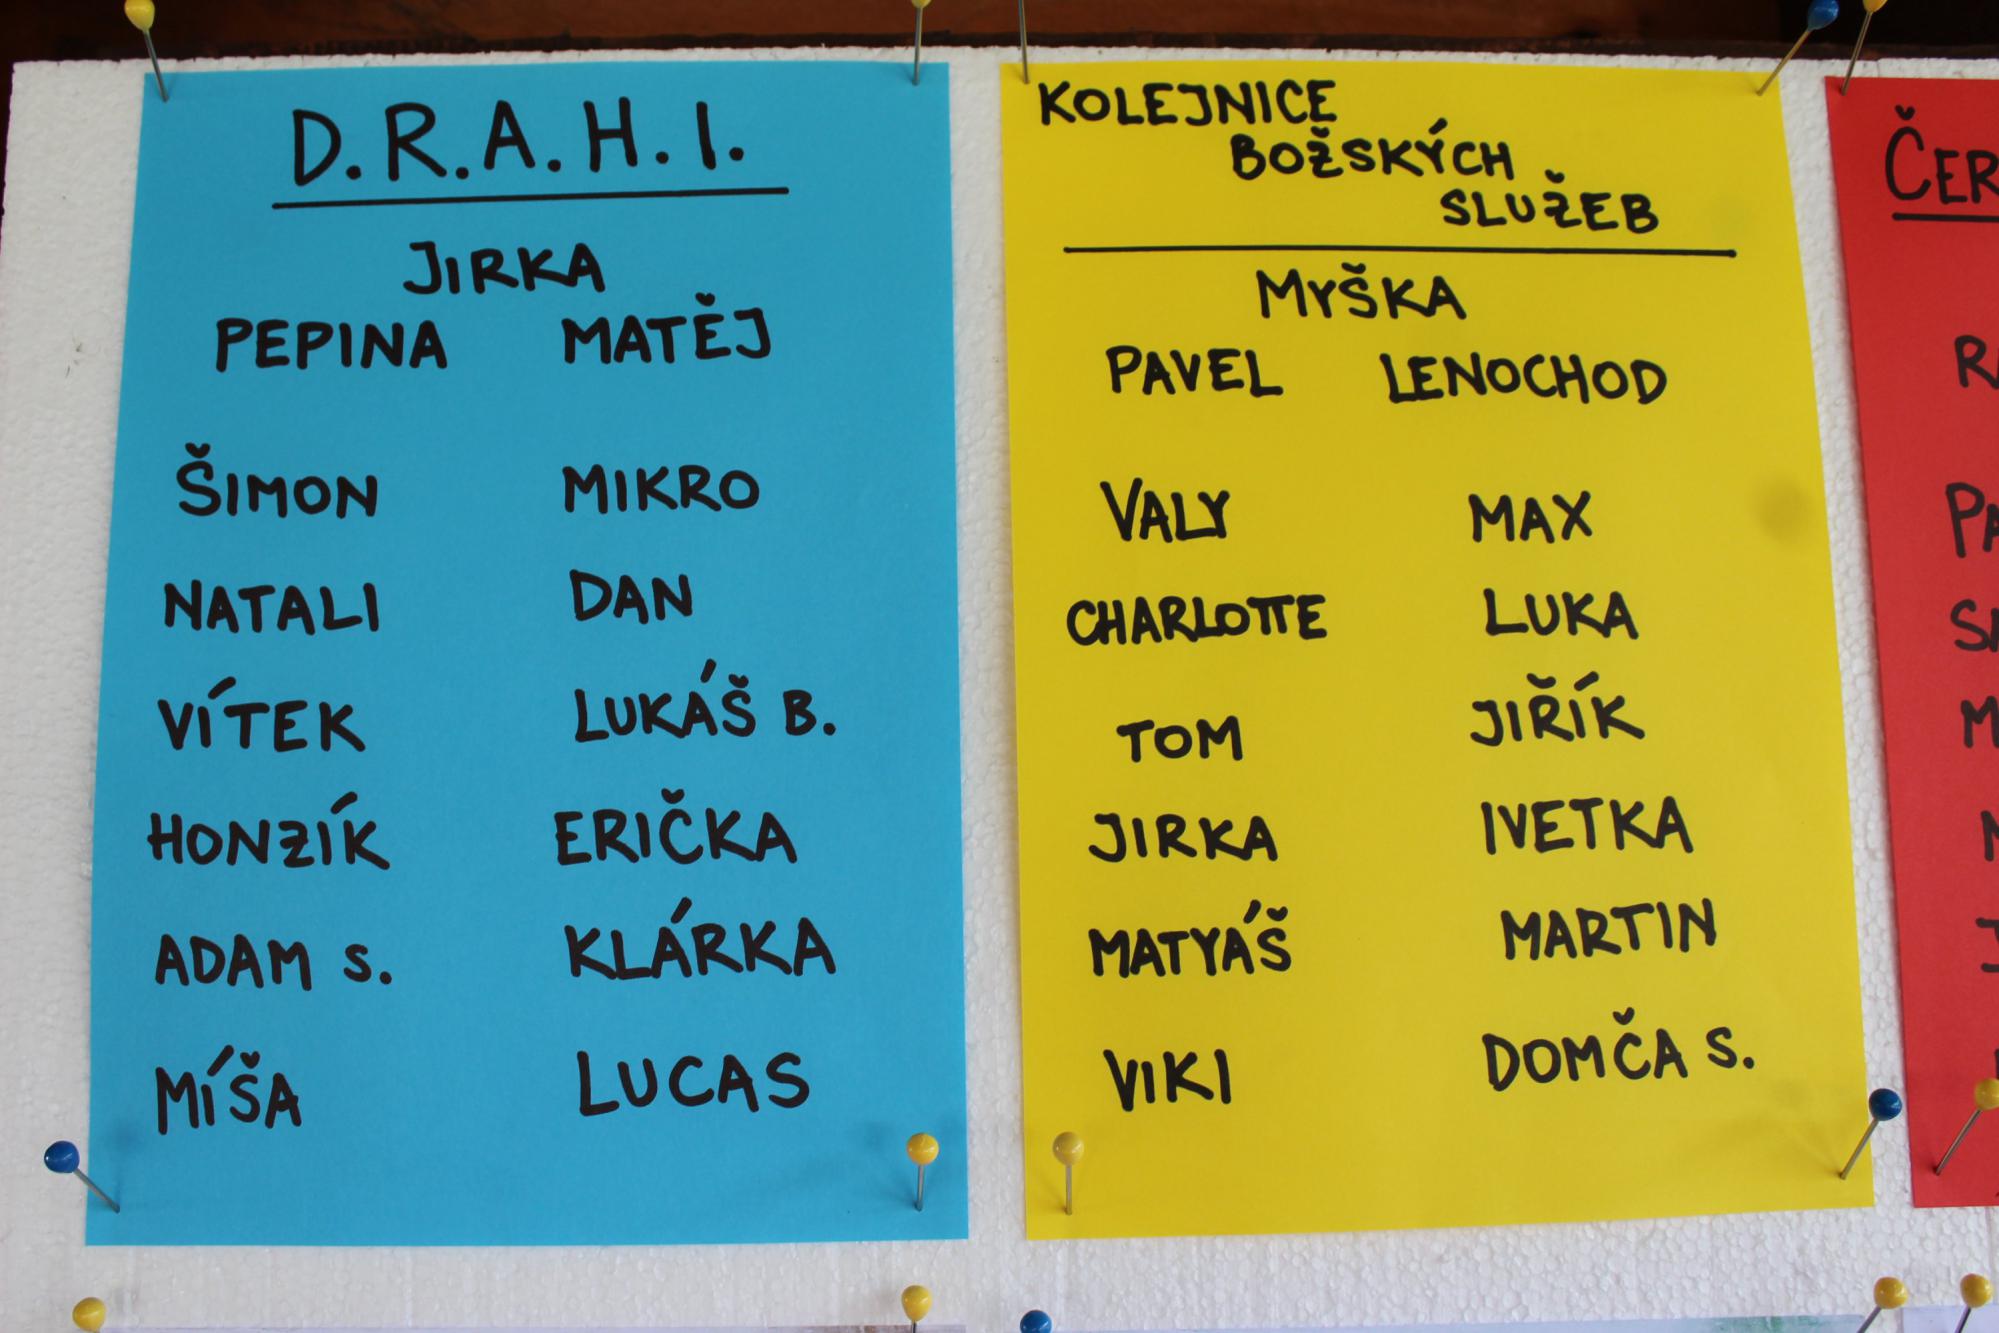 D.R.A.H.I.
JIRKA
PEPINA MATĚJ
ŠIMON MIKRO
NATALI DAN
VÍTEK LUKÁŠ B.
HONZÍK ERIČKA
ADAM S. KLÁRKA
MÍŠA LUCAS
KOLEJNICE
BOŽSKÝCH
SLUŽEB
MYŠKA
PAVEL LENOCHOD
VALY MAX
CHARLOTTE LUKA
TOM JIŘÍK
JIRKA IVETKA
MATYÁŠ MARTIN
VIKI DOMČA S.